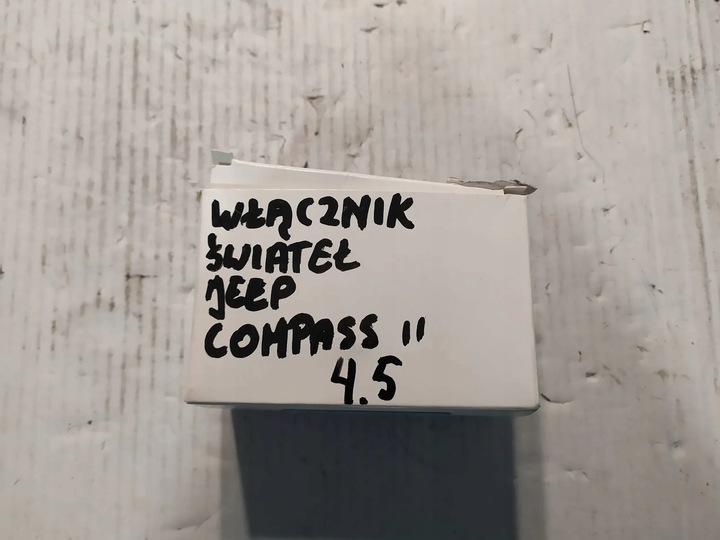 WŁĄCZNIK
ŚWIATEŁ
JEEP
COMPASS II
4.5